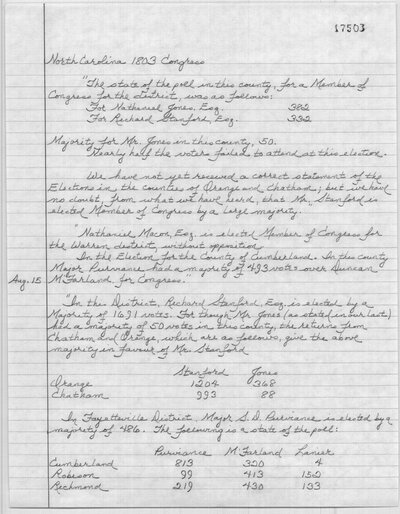 17503
North Carolina 1803 Congress
"The state of the poll in this county, for a Member of
Congress for the district, was as follows:
For Nathaniel Jones, Esq. 382
For Richard Stanford, Esq. 332
Majority for Mr. Jones in this county, 50.
Nearly half the voters failed to attend at this election.
We have not yet received a correct statement of the
Elections in the counties of Orange and Chatham; but we have
no doubt, from what we have heard, that Mr. Stanford is
elected Member of Congress by a large majority.
"Nathaniel Macon, Esq. is elected Member of Congress for
the Warren district, without opposition.
In the Election for the County of Cumberland. In this county
Major Purviance had a majority of 493 votes over Duncan
Aug. 15 McFarland, for Congress."
"In this District, Richard Stanford, Esq. is elected by a
Majority of 1691 votes. For though Mr. Jones (as stated in our last)
had a majority of 50 votes in this county, the returns from
Chatham and Orange, which are as follows, give the above
majority in favour of Mr. Stanford
Stanford Jones
Orange 1204 368
Chatham 993 88
In Fayetteville District, Major S.D. Purviance is elected by a
majority of 486. The following is a state of the poll:
Purviance McFarland Lanier
Cumberland 813 320 4
Robeson 99 413 152
Richmond 219 430 133